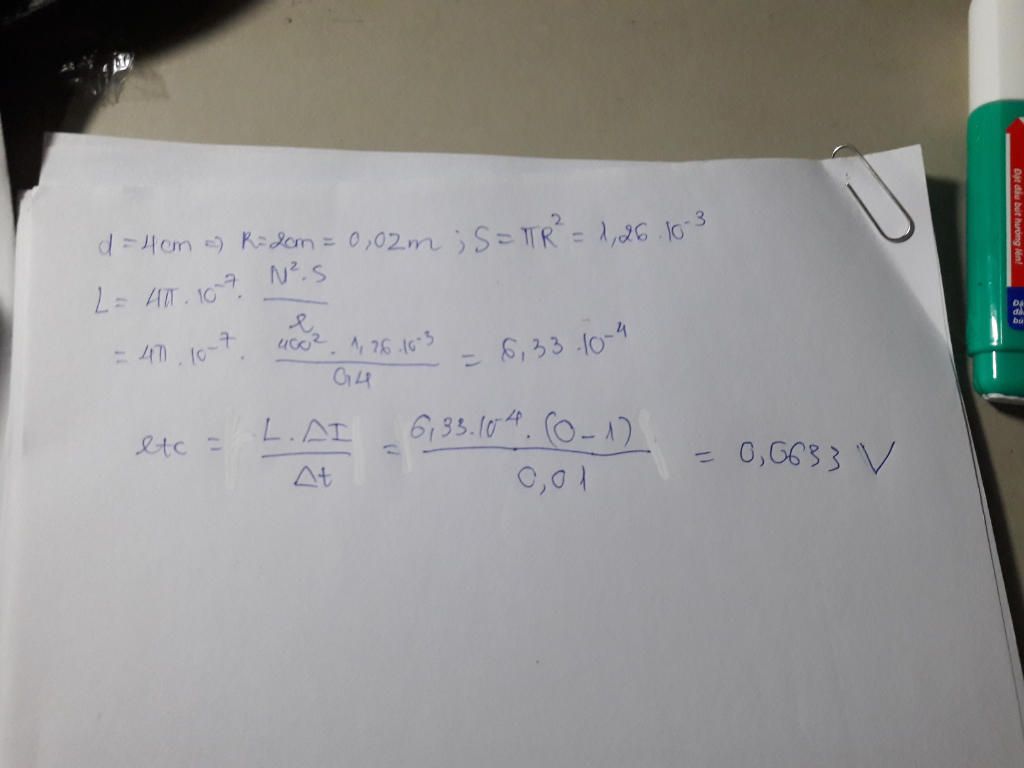 d = 4cm => R = 2cm = 0,02m ; S = πR² = 1,26.10⁻³
L = 4π.10⁻⁷. N².S / l
= 4π.10⁻⁷. 400².1,26.10⁻³ / 0,4 = 6,33.10⁻⁴
etc = L.ΔI / Δt = 6,33.10⁻⁴.(0-1) / 0,01 = 0,0633 V
Đặt đầu bút hướng lên!